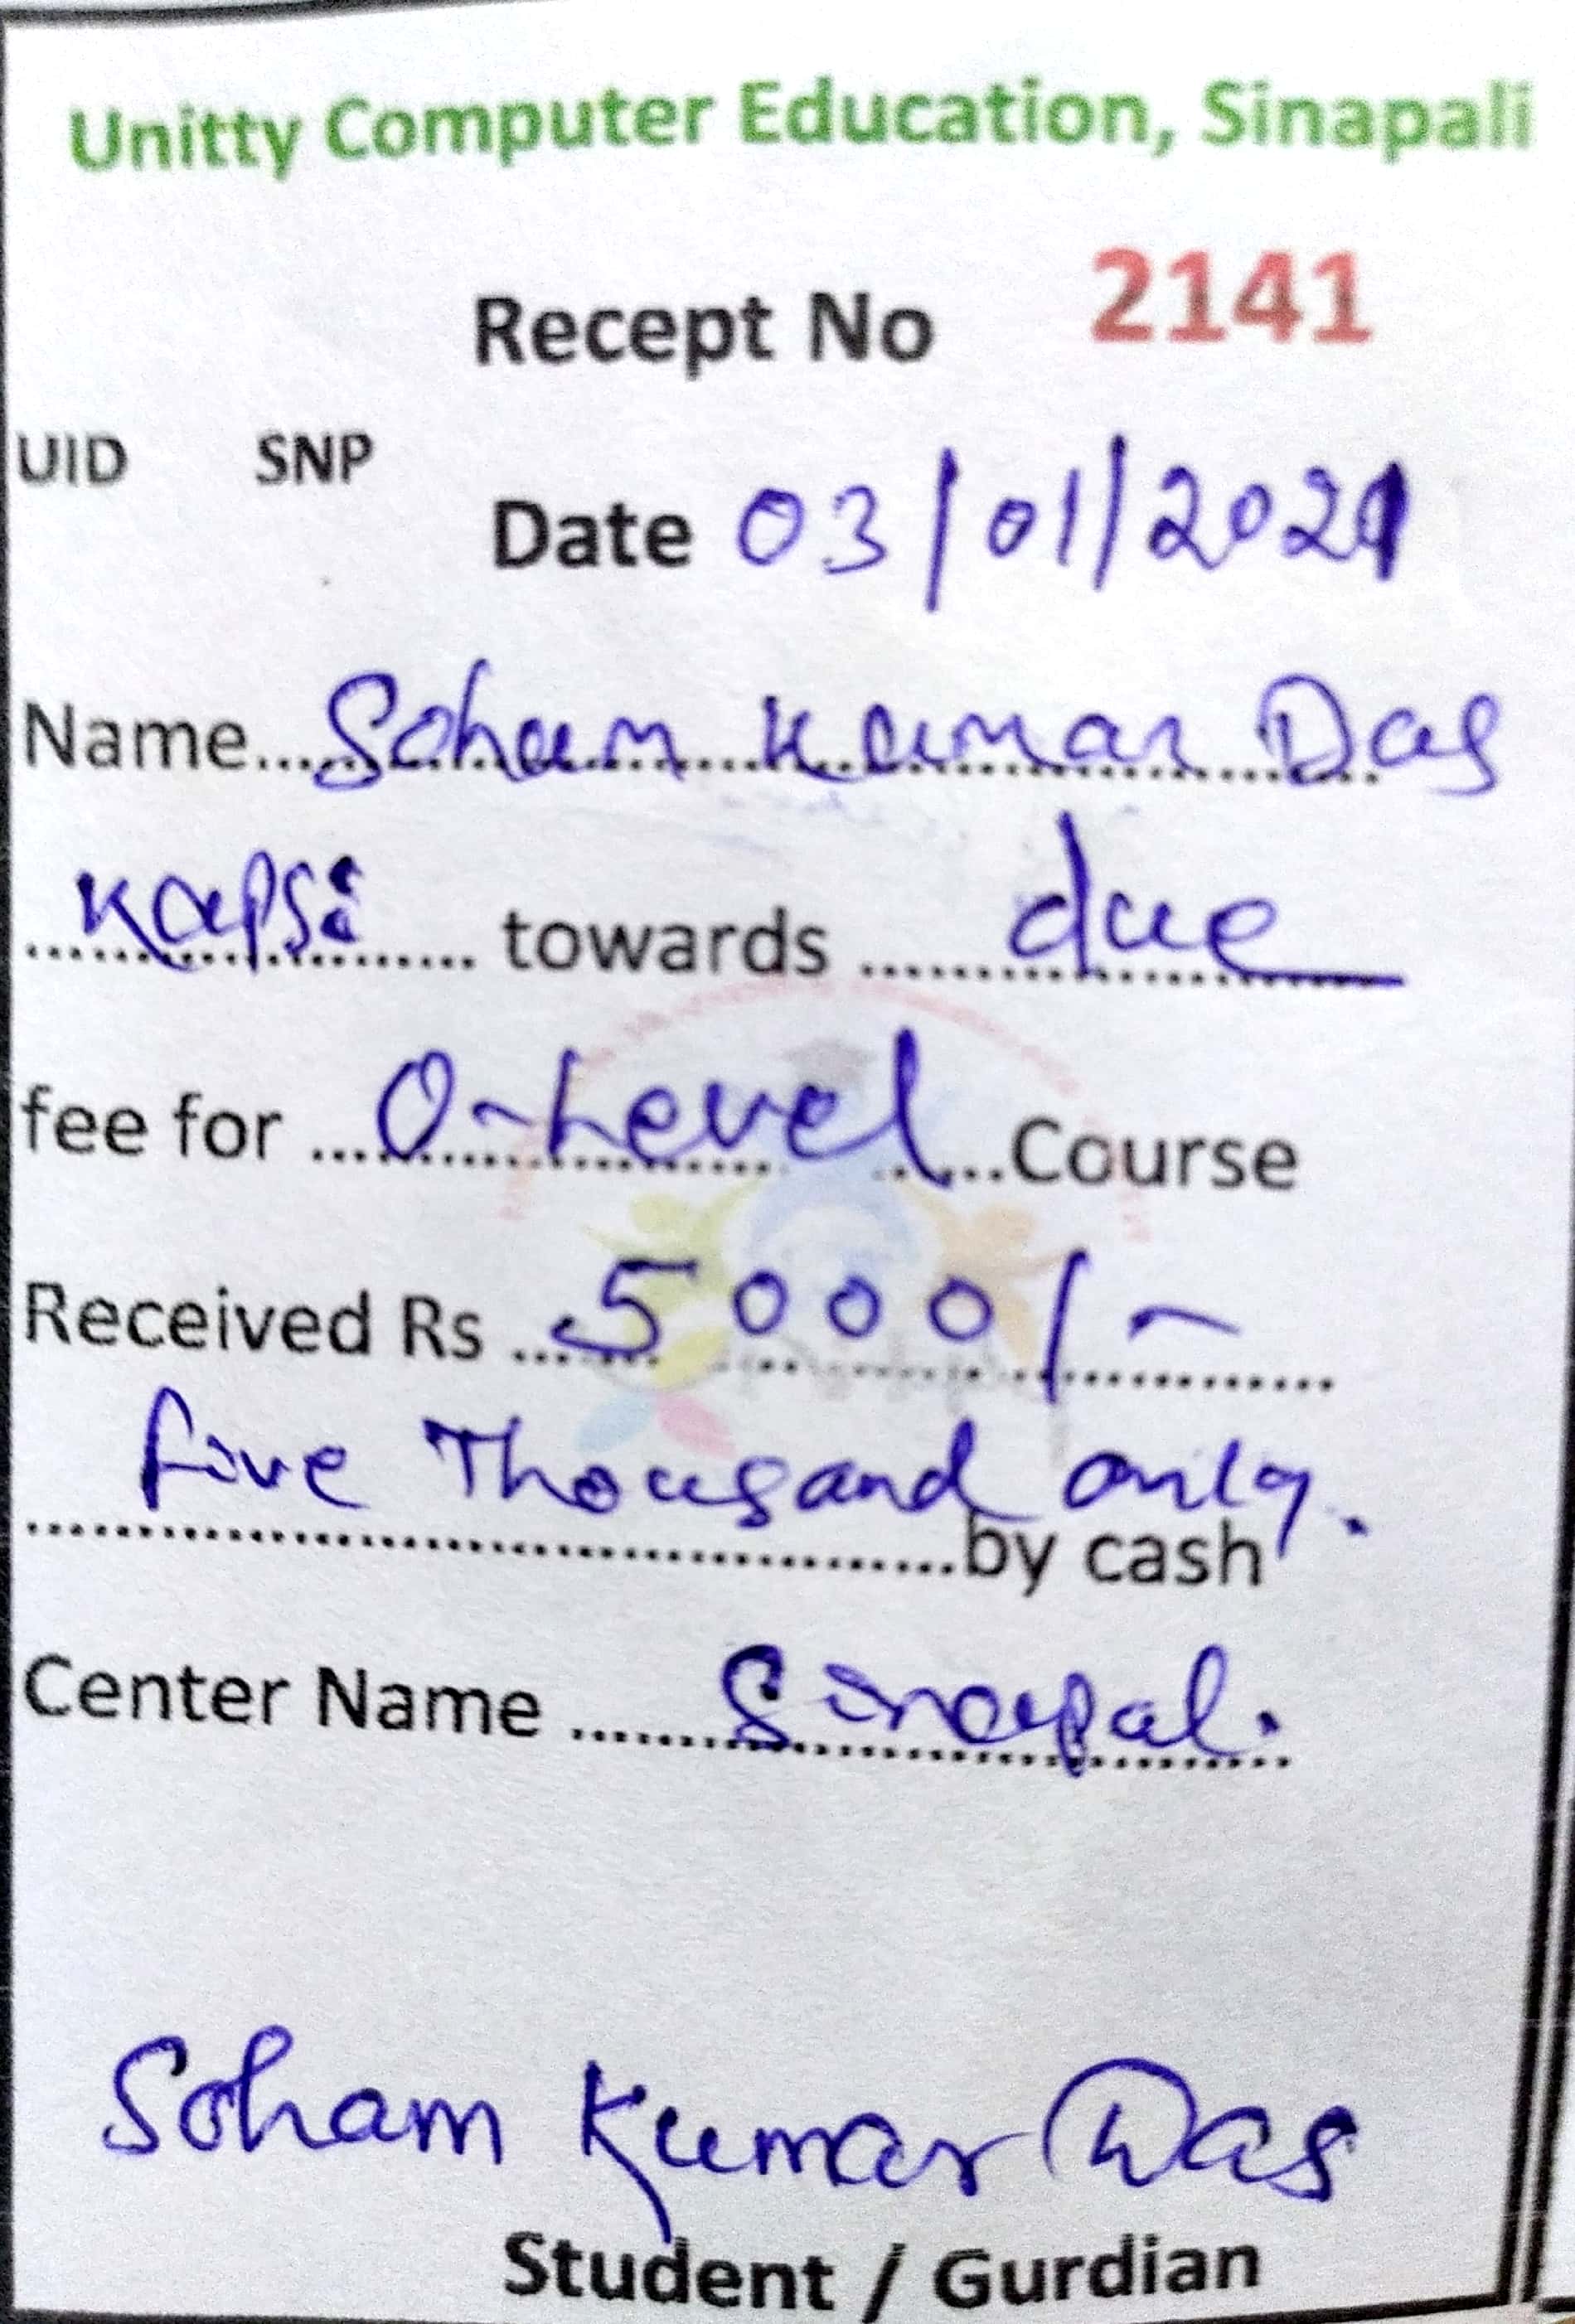 Unitty Computer Education, Sinapali
Recept No 2141
UID SNP
Date 03/01/2021
Name....Soham Kumar Das
Kapsi towards due
fee for ...O-Level...Course
Received Rs ...5000/-
five Thousand only.
by cash
Center Name ......Sinapali
Soham Kumar Das
Student / Gurdian